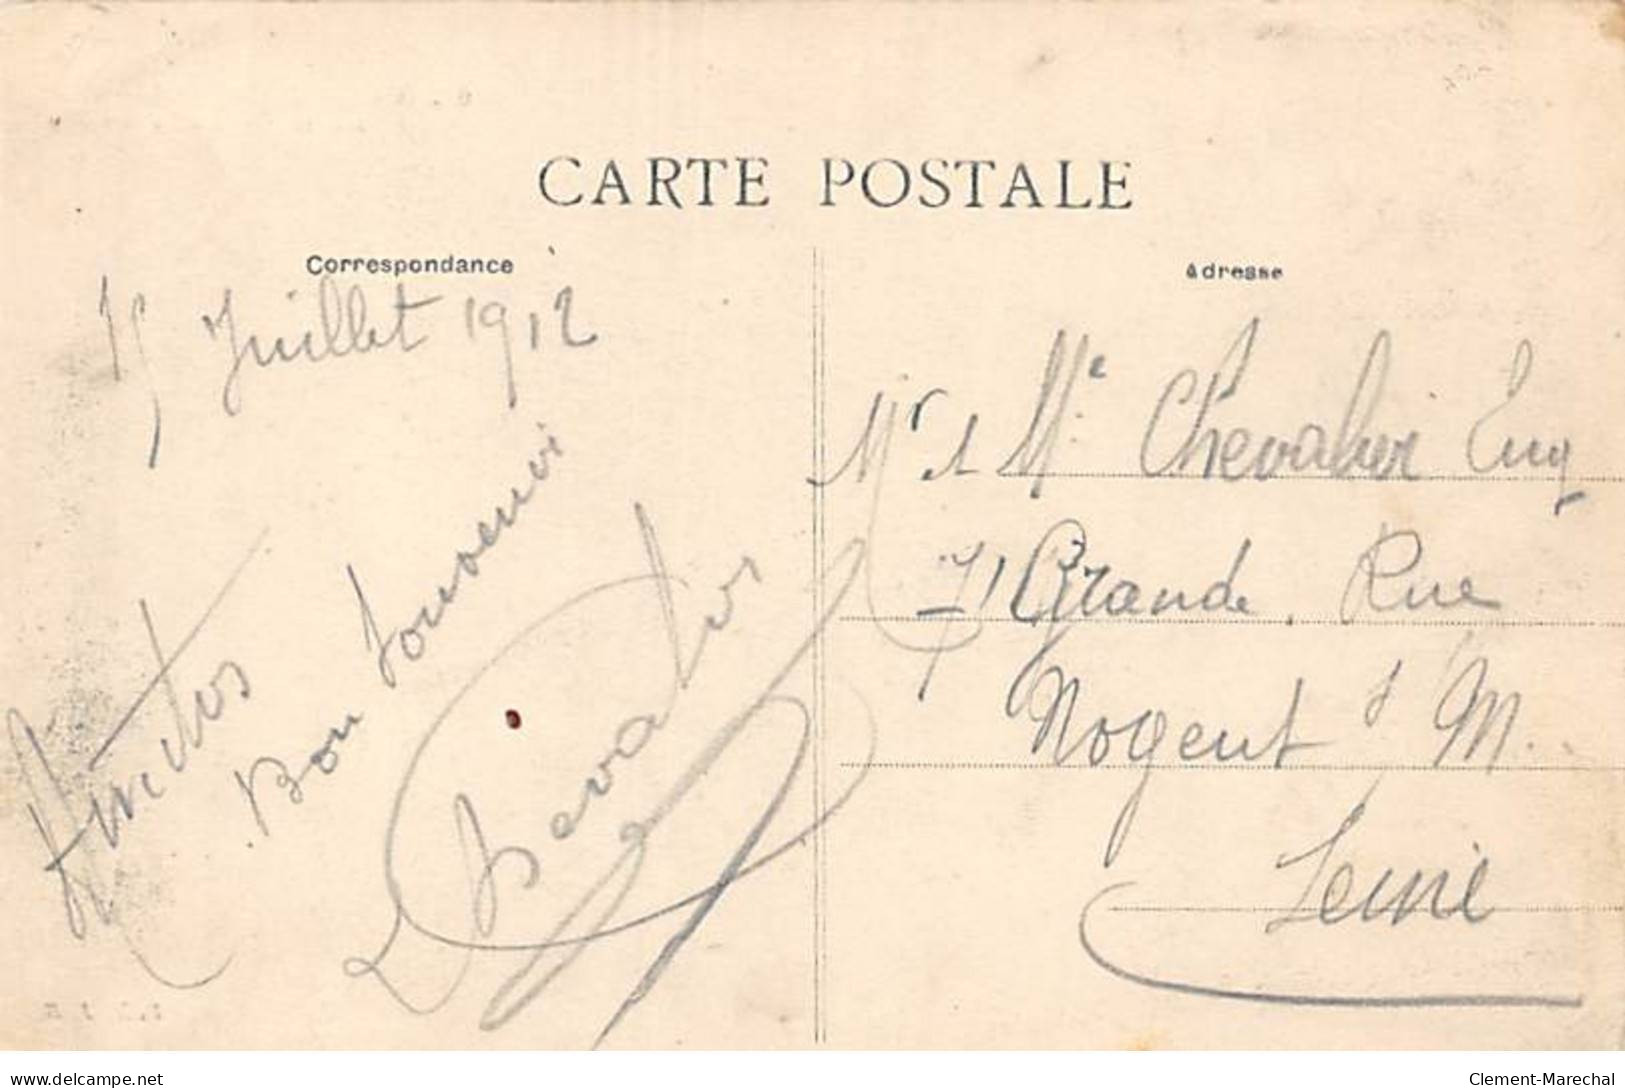 CARTE POSTALE
Correspondance
15 Juillet 1912
Amitiés
Bon souvenir
Adresse
Mr et Me Chevalier Eug
71 Grande Rue
Nogent s/ M.
Seine
delcampe.net
Clement-Marechal